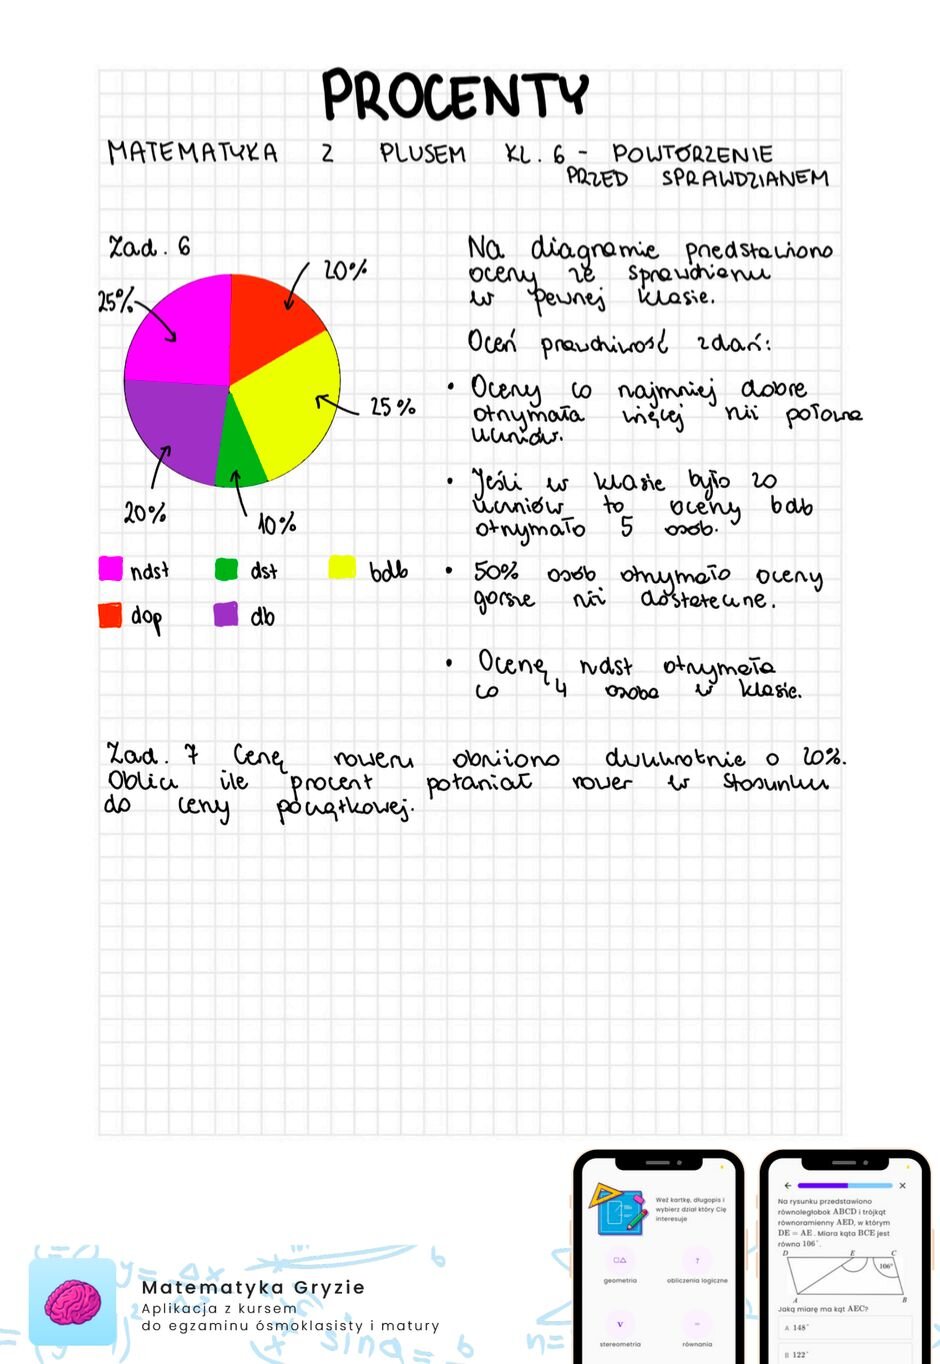 PROCENTY
MATEMATYKA Z PLUSEM KL. 6 - POWTÓRZENIE
PRZED SPRAWDZIANEM
Zad. 6
20%
25%
25%
20%
10%
ndst
dst
bdb
dop
db
Na diagramie przedstawiono
oceny ze sprawdzianu
w pewnej klasie.
Oceń prawdziwość zdań:
• Oceny co najmniej dobre
otrzymała więcej niż połowa
uczniów.
• Jeśli w klasie było 20
uczniów to oceny bdb
otrzymało 5 osób.
• 50% osób otrzymało oceny
gorsze niż dostateczne.
• Ocenę ndst otrzymała
co 4 osoba w klasie.
Zad. 7 Cenę roweru obniżono dwukrotnie o 20%.
Oblicz ile procent potaniał rower w stosunku
do ceny początkowej.
Matematyka Gryzie
Aplikacja z kursem
do egzaminu ósmoklasisty i matury
Weź kartkę, długopis i
wybierz dział który Cię
interesuje
geometria
obliczenia logiczne
stereometria
równania
Na rysunku przedstawiono
równoległobok ABCD i trójkąt
równoramienny AED, w którym
DE = AE. Miara kąta BCE jest
równa 106°.
D E C
106°
A B
Jaką miarę ma kąt AEC?
A 148°
B 122°